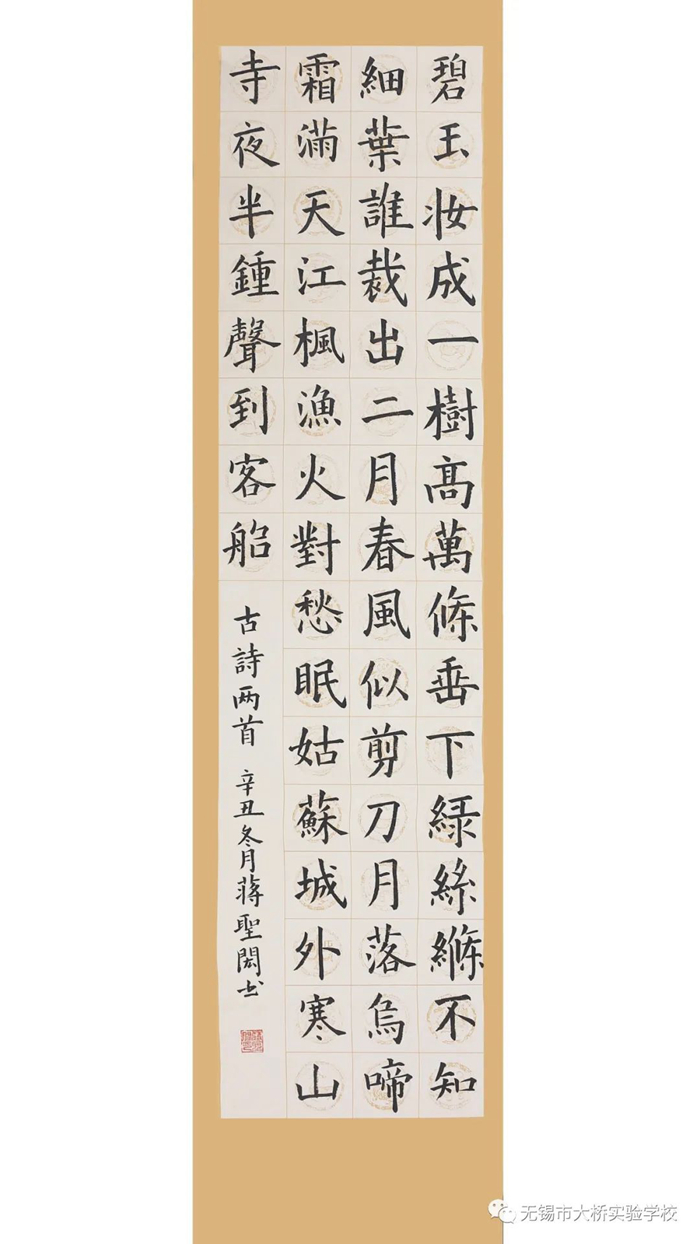 碧玉妝成一樹高萬條垂下綠絲縧不知
細葉誰裁出二月春風似剪刀月落烏啼
霜滿天江楓漁火對愁眠姑蘇城外寒山
寺夜半鍾聲到客船
古詩两首 辛丑冬月蔣聖閎书
无锡市大桥实验学校